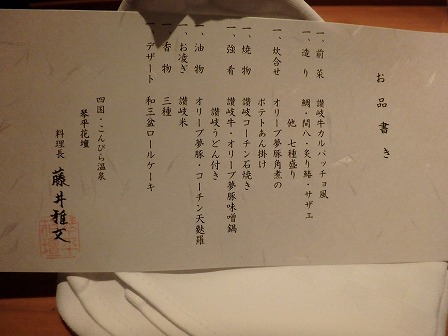 お品書き
一、前菜　讃岐牛カルパッチョ風
一、造り　鯛・間八・炙り鰆・サザエ
他　七種盛り
一、炊合せ　オリーブ夢豚角煮の
ポテトあん掛け
一、焼物　讃岐コーチン石焼き
一、強肴　讃岐牛・オリーブ夢豚味噌鍋
讃岐うどん付き
一、油物　オリーブ夢豚・コーチン天麩羅
一、お凌ぎ　讃岐米
一、香物　三種
一、デザート　和三盆ロールケーキ
四国・こんぴら温泉
琴平花壇
料理長　藤井雅文